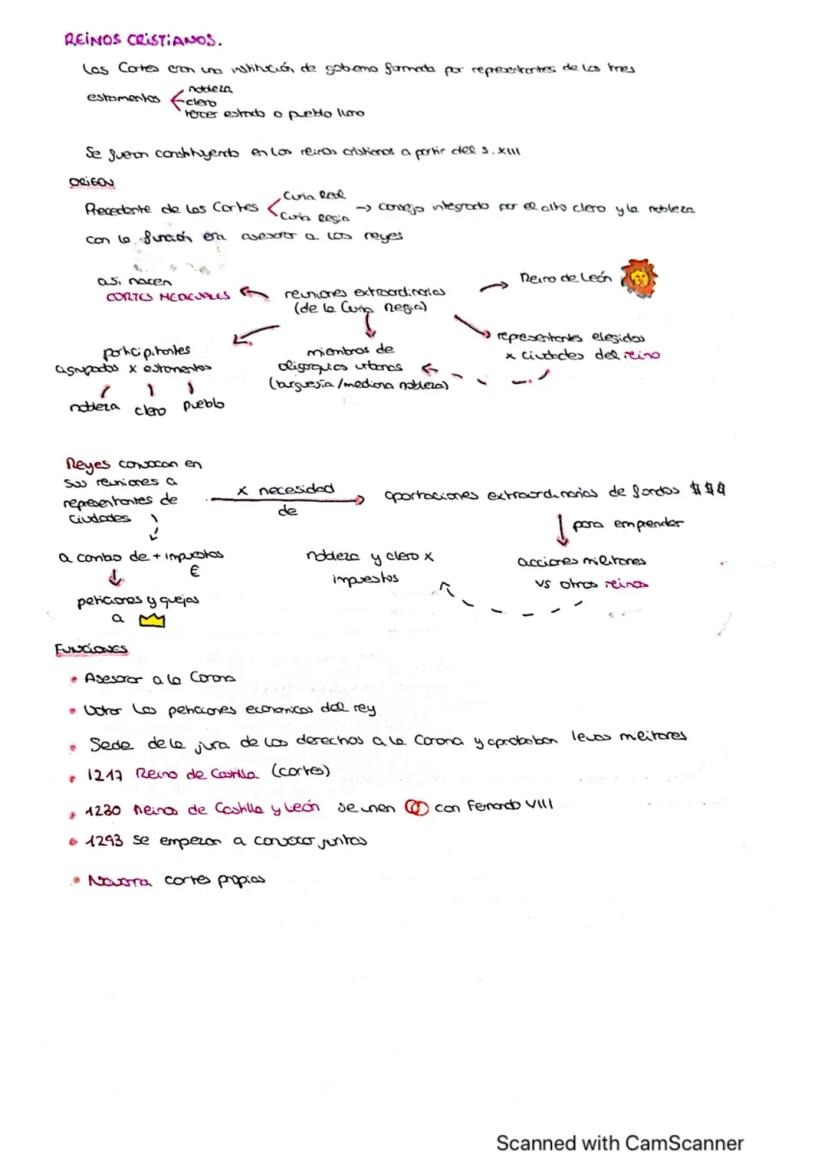 REINOS CRISTIANOS.
Las Cortes eran una institución de gobierno formada por representantes de los tres
estamentos
nobleza
clero
tercer estado o pueblo llano
Se fueron constituyendo en los reinos cristianos a partir del s. XIII
ORIGEN
Precedente de las Cortes
Curia Real
Curia Regia
→ consejo integrado por el alto clero y la nobleza
con la función era asesorar a los reyes
así nacen
CORTES MEDIEVALES
reuniones extraordinarias
(de la Curia Regia)
Reino de León
participantes
agrupados x estamentos
nobleza clero pueblo
miembros de
oligarquías urbanas
(burguesía/mediana nobleza)
representantes elegidos
x ciudades del reino
Reyes convocan en
sus reuniones a
representantes de
ciudades
x necesidad
de
aportaciones extraordinarias de fondos $$$
para emprender
acciones militares
vs otros reinos
nobleza y clero x
impuestos
a cambio de + impuestos
€
peticiones y quejas
a
FUNCIONES
• Asesorar a la Corona
• Votar las peticiones economicas del rey
• Sede de la jura de los derechos a la Corona y aprobaban levas militares
• 1217 Reino de Castilla (cortes)
• 1230 Reinos de Castilla y León se unen con Fernando VIII
• 1293 se empezan a convocar juntas
• Navarra cortes propias
Scanned with CamScanner